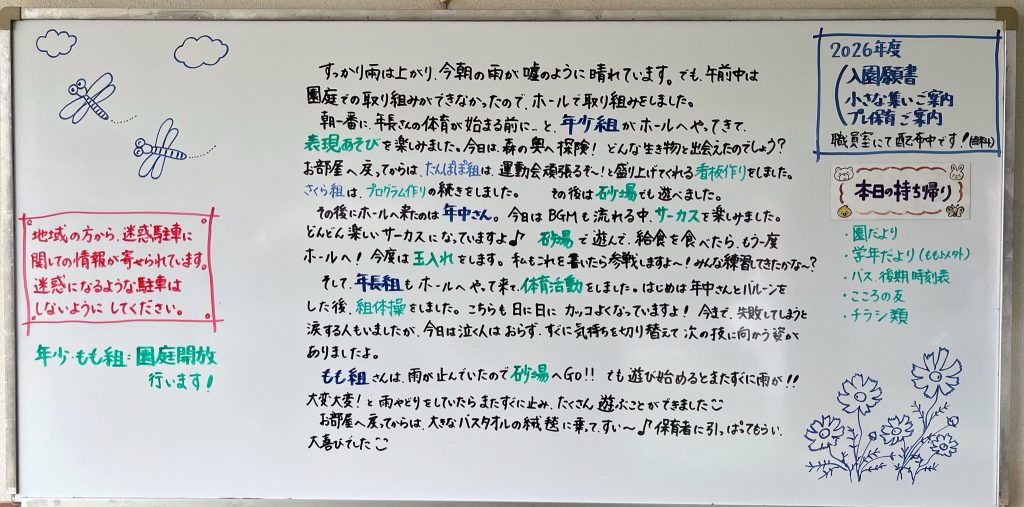 地域の方から、迷惑駐車に
関しての情報が寄せられています。
迷惑になるような駐車は
しないように してください。
年少・もも組：園庭開放
行います！
すっかり雨は上がり、今朝の雨が嘘のように晴れています。でも、午前中は
園庭での取り組みができなかったので、ホールで取り組みをしました。
朝一番に、年長さんの体育が始まる前に…と、年少組がホールへやってきて、
表現あそびを楽しみました。今日は、森の奥へ探険！どんな生き物と出会えたのでしょう？
お部屋へ戻ってからは、たんぽぽ組は、運動会頑張るぞ〜！と盛り上げてくれる看板作りをしました。
さくら組は、プログラム作りの続きをしました。 その後は砂場でも遊べました。
その後にホールへ来たのは年中さん。今日はBGMも流れる中、サーカスを楽しみました。
どんどん楽しいサーカスになっていますよ♪ 砂場で遊んで、給食を食べたら、もう一度
ホールへ！今度は玉入れをします。私もこれを書いたら参戦しますよ〜！みんな練習してきたかな〜？
そして、年長組もホールへやって来て、体育活動をしました。はじめは年中さんとバルーンを
した後、組体操をしました。こちらも日に日に カッコよくなっていますよ！今まで、失敗してしまうと
涙する人もいましたが、今日は泣く人は おらず、すぐに気持ちを切り替えて 次の技に向かう姿が
ありましたよ。
もも組さんは、雨が止んでいたので砂場へGO!! でも遊び始めるとまたすぐに雨が!!
大変大変！と雨やどりをしていたらまたすぐに止み、たくさん 遊ぶことができました
お部屋へ戻ってからは、大きなバスタオルの絨毯に乗って、すい〜♪ 保育者に引っぱってもらい、
大喜びでした
2026年度
入園願書
小さな集いご案内
プレ保育ご案内
職員室にて配布中です！(無料)
本日の持ち帰り
・園だより
・学年だより(もも以外)
・バス後期時刻表
・こころの友
・チラシ類